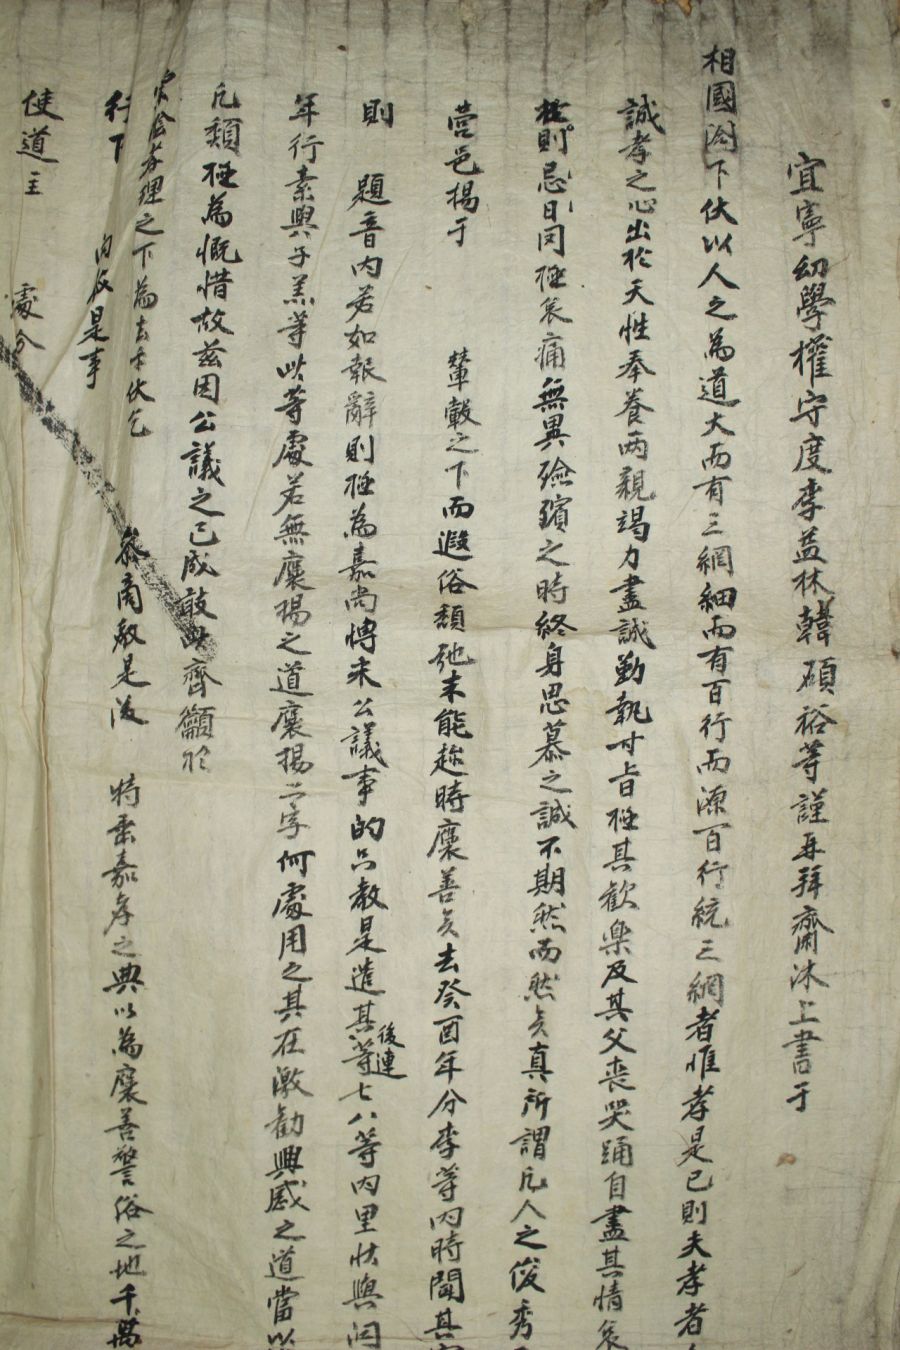 宜寧幼學權守度李益林韓碩裕等謹再拜齋沐上書于
相國閤下伏以人之為道大而有三綱細而有百行而源百行統三綱者惟孝是已則夫孝者
誠孝之心出於天性奉養兩親竭力盡誠勤執寸旨極其歡樂及其父喪哭踊自盡其情哀
極則忌日同極哀痛無異殮殯之時終身思慕之誠不期然而然矣真所謂凡人之俊秀
營邑揚于 輦轂之下而遐俗頹弛未能趁時褒善矣去癸酉年分李等內時聞其
則 題音內若如報辭則極為嘉尚博采公議事的只教是遣其後連等七八等內里狀與
年行素與子羔等以等處若無褒揚之道褒揚二字何處用之其在激勸興感之道當以
凡類極為慨惜故茲因公議之已成敢此齊籲於
孝理之下為去乎伏乞
參商教是後 特垂嘉孝之典以為褒善警俗之地千萬
行下 為良 是事
使道主 處分